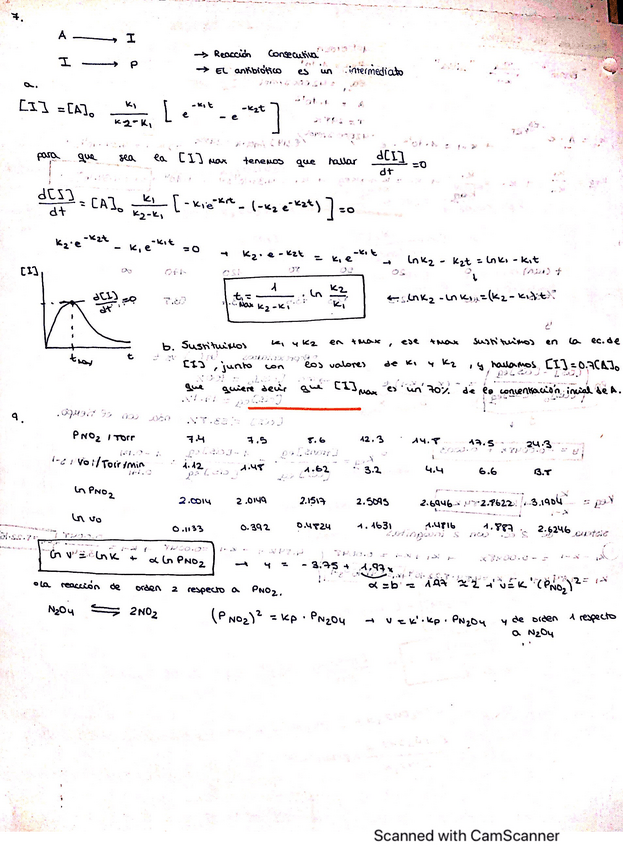 7.
A ⟶ I
I ⟶ P
→ Reacción Consecutiva
→ EL antibiótico es un intermediato
a.
[I] = [A]₀ K₁/(K₂-K₁) [ e^-K₁t - e^-K₂t ]
para que sea la [I] max tenemos que hallar d[I]/dt = 0
d[I]/dt = [A]₀ K₁/(K₂-K₁) [-K₁e^-K₁t - (-K₂ e^-K₂t)] = 0
K₂·e^-K₂t - K₁e^-K₁t = 0 → K₂·e^-K₂t = K₁e^-K₁t → lnK₂ - K₂t = lnK₁ - K₁t
← lnK₂ - lnK₁ = (K₂-K₁)t
t max = 1/(K₂-K₁) · ln K₂/K₁
[I]
d[I]/dt = 0
t max
t
b. Sustituimos K₁ y K₂ en tmax, ese tmax sustituimos en la ec. de
[I], junto con los valores de K₁ y K₂, y hallamos [I]=0,7[A]₀
que quiere decir que [I] max es un 70% de la concentración inicial de A.
9.
PNO₂ / Torr 7.4 7.5 8.6 12.3 14.8 17.5 24.3
Vo / Torr/min 1.12 1.48 1.62 3.2 4.4 6.6 13.8
ln PNO₂ 2.0014 2.0149 2.1517 2.5095 2.6946 2.8622 3.1904
ln Vo 0.1133 0.392 0.4824 1.1631 1.4816 1.887 2.6246
ln V = lnK + α ln PNO₂ → y = -3.75 + 1.97x
α = b = 1.97 ≈ 2 → V = K'(PNO₂)²
• la reacción de orden 2 respecto a PNO₂.
N₂O₄ ⇌ 2NO₂ (PNO₂)² = Kp · PN₂O₄ → V = K'·Kp·PN₂O₄ y de orden 1 respecto
a N₂O₄
Scanned with CamScanner